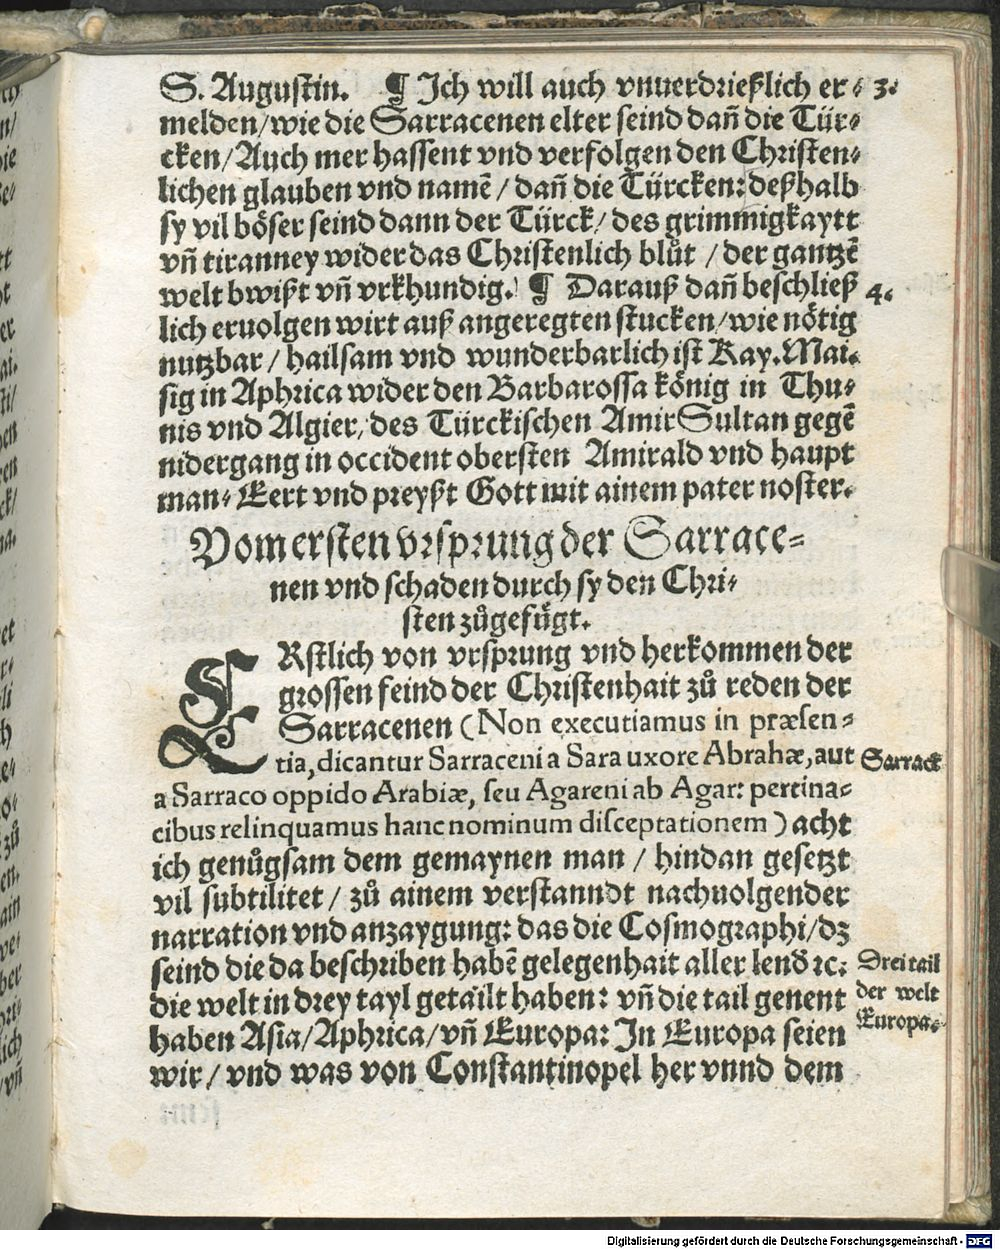 S. Augustin. ¶ Ich will auch vnuerdrießlich er⸗ 3.
melden/wie die Sarracenen elter seind dañ die Tür⸗
cken/Auch mer hassent vnd verfolgen den Christen⸗
lichen glauben vnd namẽ/dañ die Türcken: deßhalb
sy vil böser seind dann der Türck/des grimmigkaytt
vñ tiranney wider das Christenlich blůt/der gantzẽ
welt bwißt vñ vrkhundig. ¶ Darauß dañ beschließ 4.
lich eruolgen wirt auß angeregten stucken/wie nötig
nutzbar/hailsam vnd wunderbarlich ist Kay. Mai.
sig in Aphrica wider den Barbarossa könig in Thu⸗
nis vnd Algier, des Türckischen Amir Sultan gegẽ
nidergang in occident obersten Amirald vnd haupt
man⸗ Eert vnd preyßt Gott mit ainem pater noster.
Vom ersten vrsprung der Sarrace⸗
nen vnd schaden durch sy den Chri⸗
sten zůgefügt.
ERstlich von vrsprung vnd herkommen der
grossen feind der Christenhait zů reden der
Sarracenen (Non executiamus in præsen⸗
tia, dicantur Sarraceni a Sara uxore Abrahæ, aut
a Sarraco oppido Arabiæ, seu Agareni ab Agar: pertina⸗
cibus relinquamus hanc nominum disceptationem) acht
ich genůgsam dem gemaynen man/hindan gesetzt
vil subtilitet/zů ainem verstanndt nachuolgender
narration vnd anzaygung: das die Cosmographi/dz
seind die da beschriben habẽ gelegenhait aller lend ꝛc:
die welt in drey tayl getailt haben: vñ die tail genent
haben Asia/Aphrica/vñ Europa: In Europa seien
wir/vnd was von Constantinopel her vnnd dem
Sarrack
Drei tail
der welt
Europa.
Digitalisierung gefördert durch die Deutsche Forschungsgemeinschaft - DFG